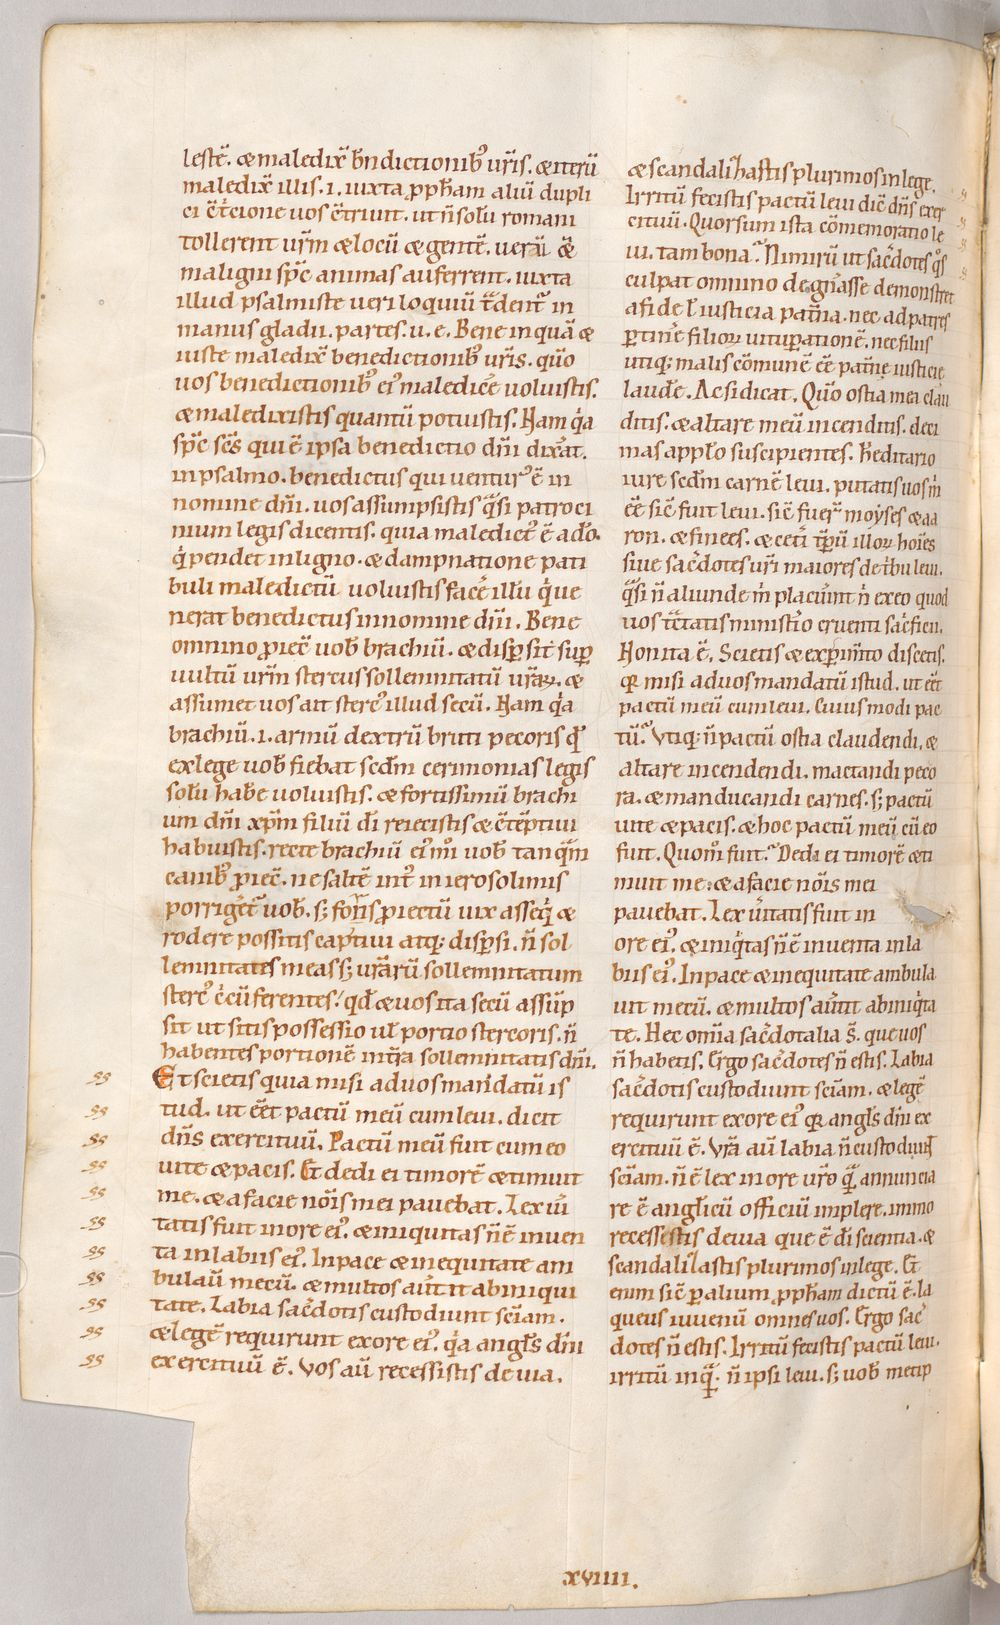 lestē. & maledix̄ b̄n dictionib᷒ ur̄is. & iterū
maledix̄ illis. i. iuxta ꝓpħam aliū dupli
ci c̄t̄cione uos c̄triuit. ut n̄ solū romani
tollerent ur̄m & locū & gentē.
maligni sp̄c animas auferrent. iuxta
illud psalmiste ueriloquiū t̄dent᷑ in
manus gladii. partes. u. e. Bene inquā &
iuste maledix̄ benedictionib᷒ ur̄is. qūo
uos benedictionib᷒ ei᷒ maledic̄e uoluistis.
& maledixistis quantū potuistis. Nam q̇a
sp̄c sc̄s qui ē ipsa benedictio dn̄i dix̄at.
in psalmo. benedictus qui uentur᷒ ē in
nomine dn̄i. uos assumpsistis q̄si patroci
nium legis dicentis. quia maledict᷒ ē a dō.
q̇ pendet in ligno. & dampnatione pati
buli maledictū uoluistis fac̄e illū q̇ ue
nerat benedictus in nomine dn̄i. Bene
omnino ꝓiec̄ uob̄ brachiū. & disꝑsit suꝑ
uultū ur̄m stercus sollemnitatū ur̄aꝝ. &
assumet uos ait sterc᷒ illud secū. Nam q̇a
brachiū. i. armū dextrū bruti pecoris qd̄
ex lege uob̄ fiebat scd̄m cerimonias legis
solū hab̄e uoluistis. & fortissimū brachi
um dn̄i xp̄m filiū dī reiecistis & c̄tēptui
habuistis. recte brachiū ei᷒ m̊ uob̄ tanq̄m
canib᷒ ꝓiec̄. ne saltē int̄ in ierosolimis
porriget᷑ uob̄. s; foris ꝓiectū uix asseq̇ &
rodere possitis captiui atq; disꝑsi. n̄ sol
lemnitates meas s; ur̄arū sollemnitatum
sterc᷒ c̄cūferentes. qd̄ & uos ita secū assūp
sit ut sitis possessio ul̄ portio stercoris. n̄
habentes portionē int̄ra sollemnitatis dn̄i.
Et scietis quia misi ad uos mandatū is
tud. ut eēt pactū meū cum leui. dicit
dn̄s exercituū. Pactū meū fuit cum eo
uite & pacis. Et dedi ei timorē & timuit
me. & a facie nōis mei pauebat. Lex ūi
tatis fuit in ore ei᷒. & iniquitas n̄ ē inuen
ta in labiis ei᷒. In pace & in equitate am
bulau̅ mecū. & multos au̅tit ab iniqui
tate. Labia sac̄dotis custodiunt sc̄iam.
& legē requirunt ex ore ei᷒. q̇a angl̄s dn̄i
exercituū ē. Vos aū recessistis de uia.
& scandaliz̄astis plurimos in lege.
Irritū fecistis pactū leui dic̄ dn̄s exer
cituū. Quorsum ista c̄omemoratio le
ui. tam bona? Nimirū ut sac̄dotes q̊s
culpat omnino degn̄asse demonstret
a fide ł iusticia pat̄na. nec ad patres
ꝑtin̄e filioꝝ uituꝑationē. nec filiis
utiq; malis c̄omunē eē pat̄ne iusticie
laud̄e. Ac si dicat. Qūo ostia mei clau
ditis. & altare meū incenditis. deci
mas app̄lo suscipientes. h̄editario
iure scd̄m carnē leui. putatis uos m̄
eē sic̄ fuit leui. sic̄ fuer᷑ moyses & aa
ron. & finees. & cet̄i tꝑū illoꝝ hoīes
siue sac̄dotes ur̄i maiores de t̄bu leui.
q̄si n̄ aliunde m̄ placūint n̄ ex eo quod
uos tc̄tatis minist̄io cruenti sac̄ficii.
Non ita ē. Scietis & exꝑim̄to discetis.
qꝛ misi ad uos mandatū istud. ut eēt
pactū meū cum leui. Cuius modi pac
tū? Vtiq; n̄ pactū ostia claudendi. &
altare incendendi. mactandi peco
ra. & manducandi carnes. s; pactū
uite & pacis. & hoc pactū meū cū eo
fuit. Quom̊ fuit? Dedi ei timorē & ti
muit me. & a facie nōis mei
pauebat. Lex ūitatis fuit in
ore ei᷒. & iniq̇tas n̄ ē inuenta in la
biis ei᷒. In pace & in equitate ambula
uit mecū. & multos au̅tit ab iniq̇ta
te. Hec omīa sac̄dotalia s̄. que uos
n̄ habetis. Ergo sac̄dotes n̄ estis. Labia
sac̄dotis custodiunt sc̄iam. & legē
requirunt ex ore ei᷒ qꝛ angl̄s dn̄i ex
ercituū ē. Vr̄a aū labia n̄ custodiunt
sc̄iam. n̄ ē lex in ore ur̄o q̄ annuncia
re ē angl̄icū officiū implere. immo
recessistis de uia que ē dī scientia. &
scandaliz̄astis plurimos in lege. Et
enim sic̄ ꝑ alium ꝓpħam dictū ē. la
queus iuuenū omnes uos. Ergo sac̄
dotes n̄ estis. Irritū fecistis pactū leui.
irritū inq̄. n̄ ipsi leui. s; uob̄ metip
XVIIII.